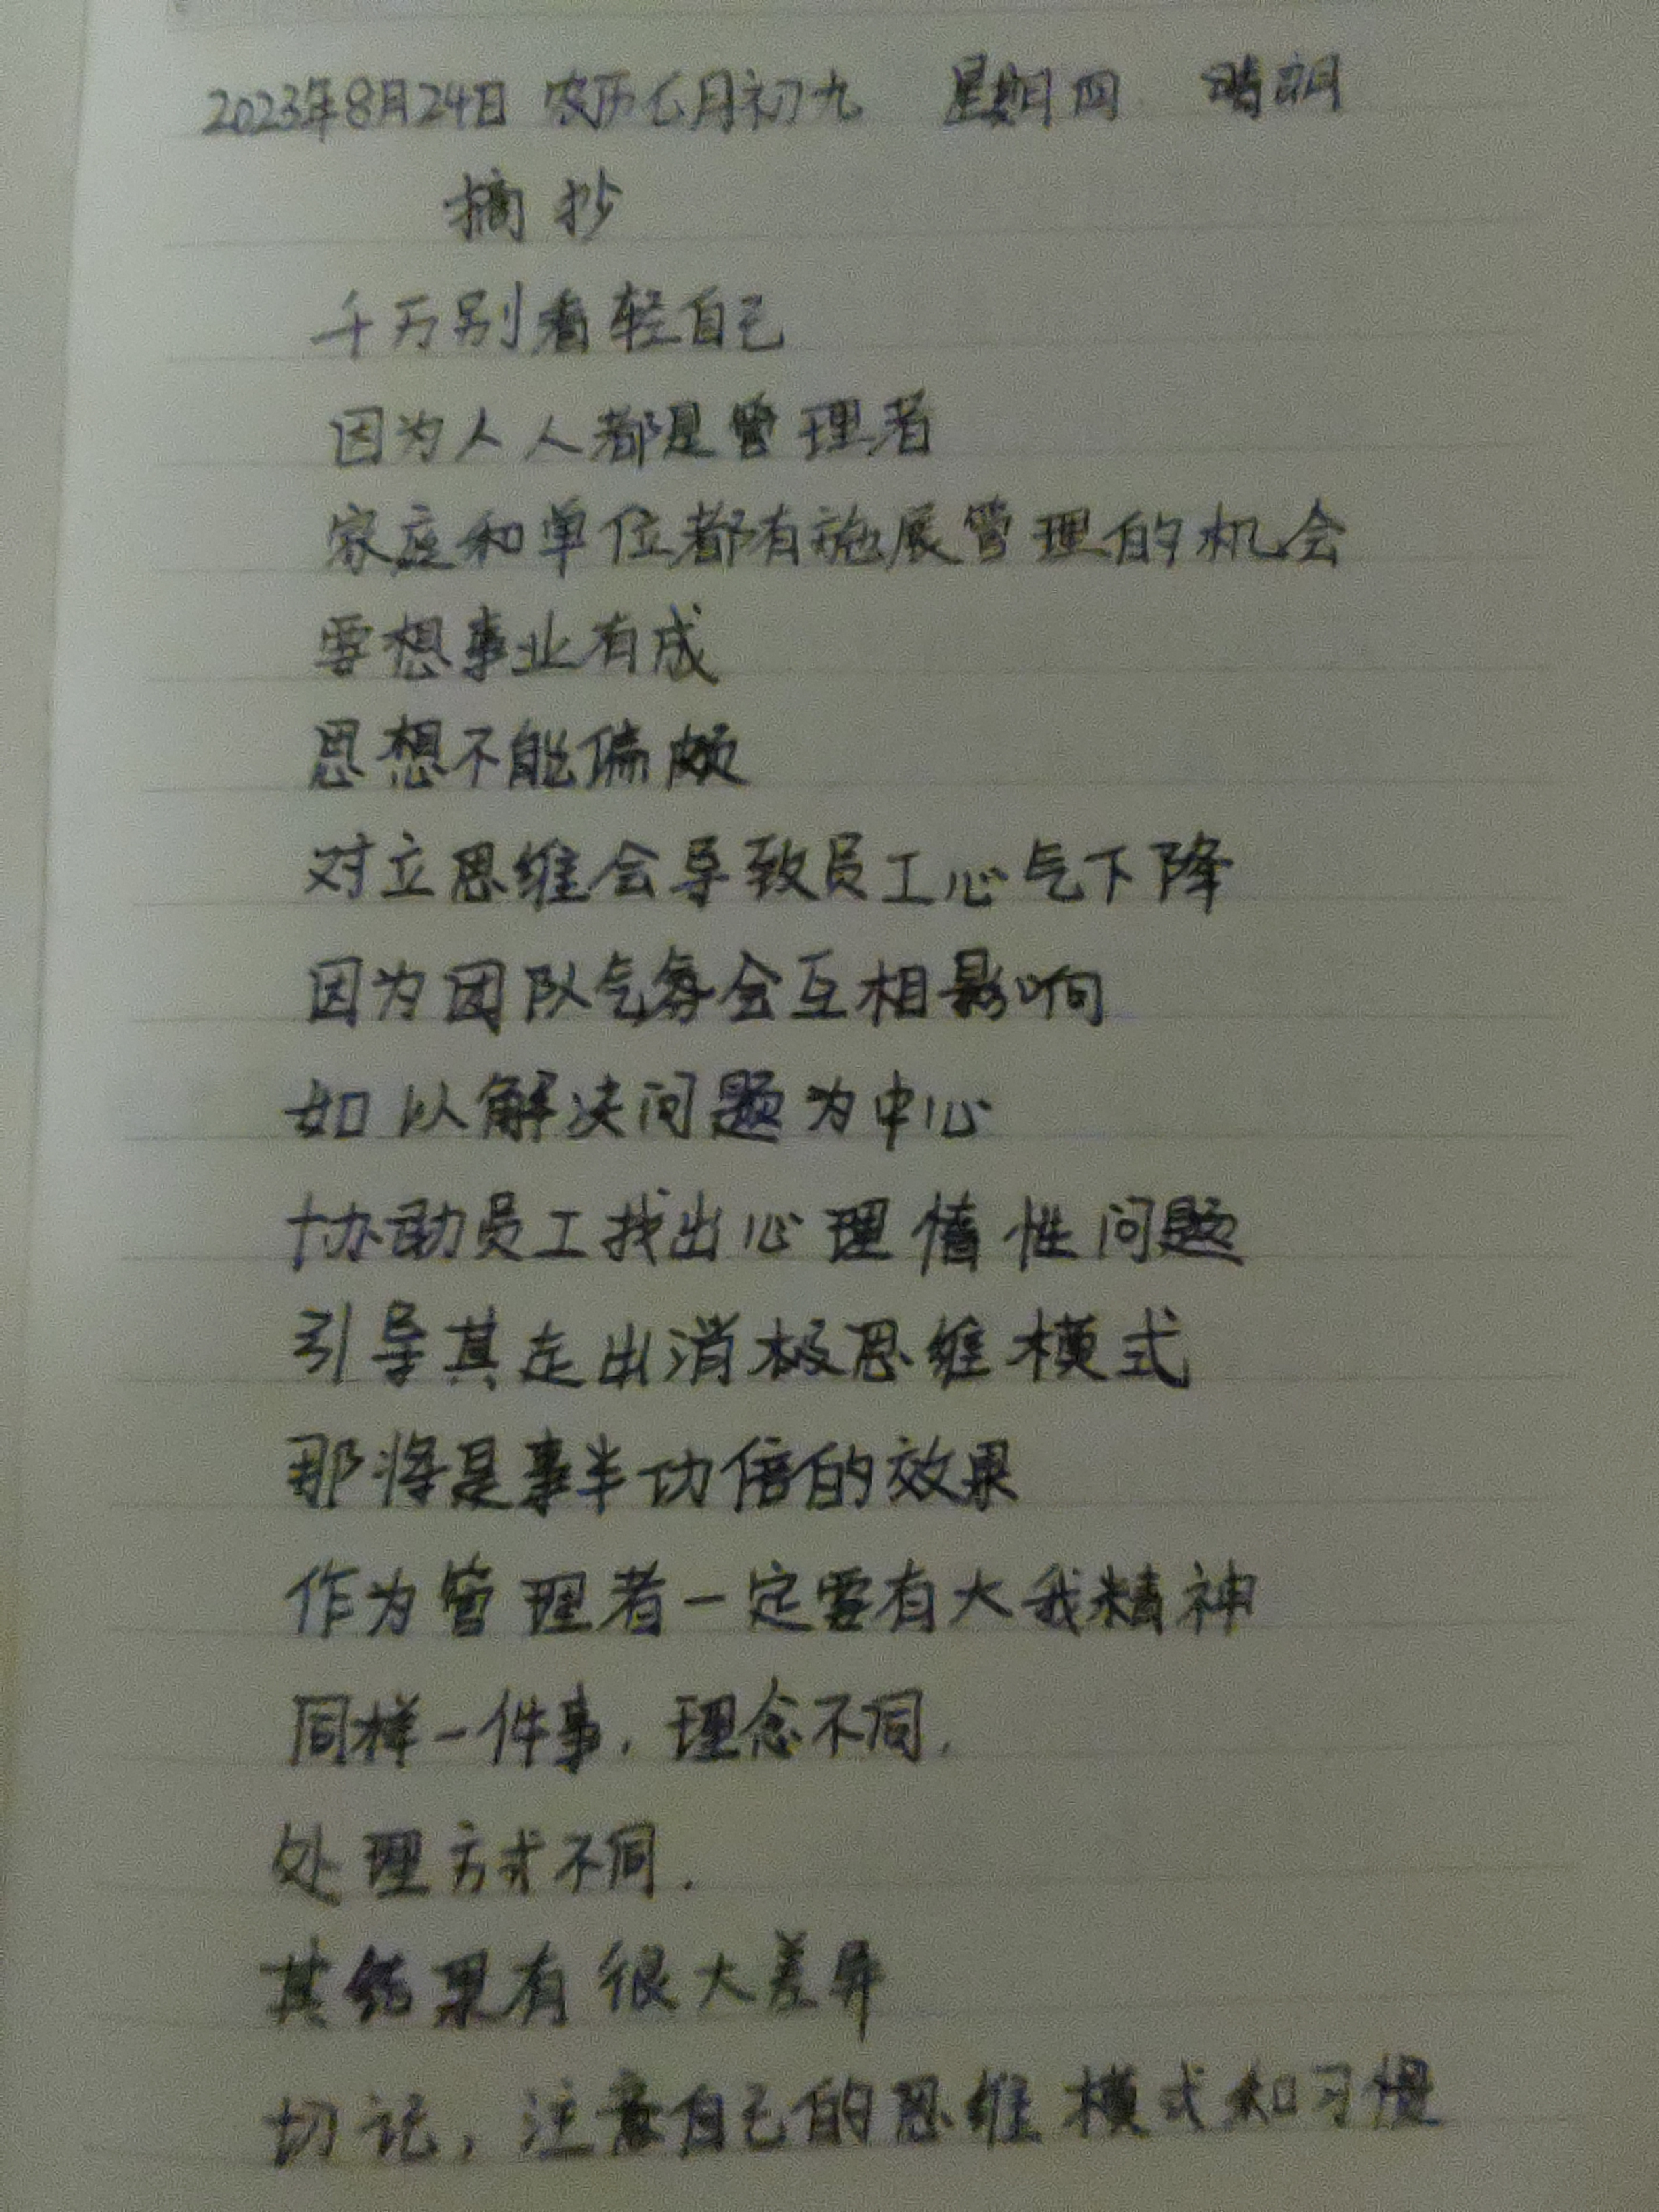 2023年8月24日 农历七月初九 星期四 晴
摘抄
千万别看轻自己
因为人人都是管理者
家庭和单位都有施展管理的机会
要想事业有成
思想不能偏颇
对立思维会导致员工心气下降
因为团队气氛会互相影响
如以解决问题为中心
协助员工找出心理惰性问题
引导其走出消极思维模式
那将是事半功倍的效果
作为管理者一定要有大我精神
同样一件事,理念不同,
处理方式不同.
其结果有很大差异
切记,注意自己的思维模式和习惯